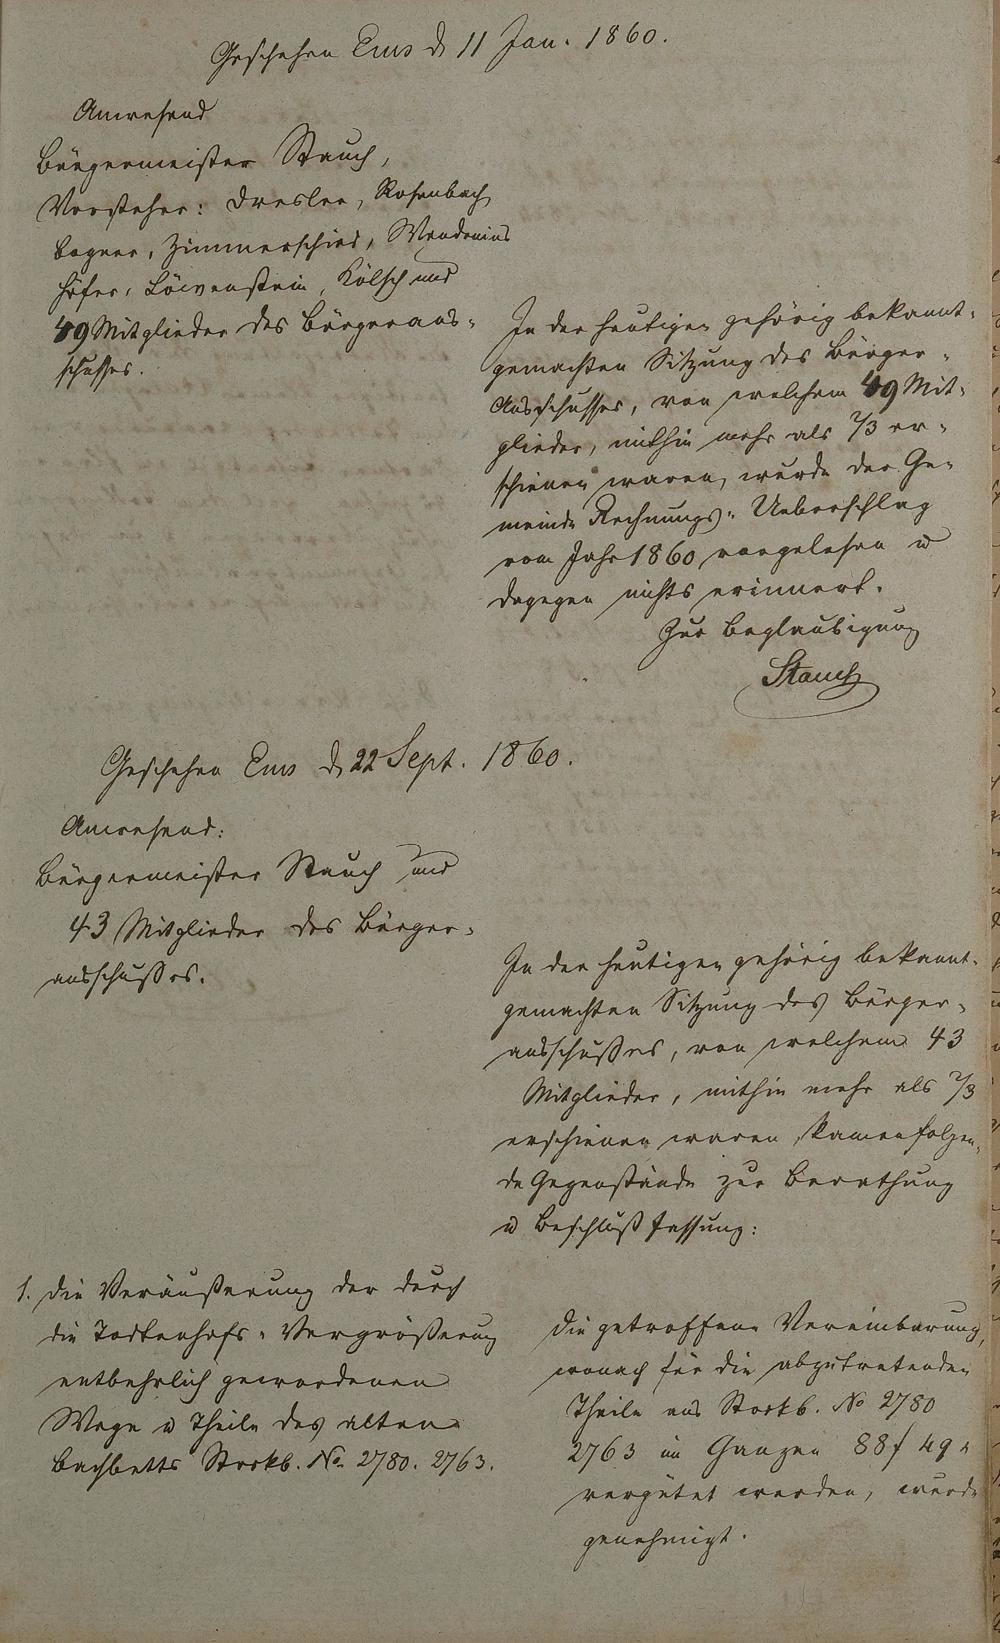 Geschehen Ems d 11 Jan. 1860.
Anwesend
Bürgermeister Stauch,
Vorsteher: Dresler, Rosenbach
Bogner, Zimmerschied, Wendenius
Höfer, Löwenstein, Kölsch und
49 Mitglieder des Bürgeraus-
schusses.
In der heutigen gehörig bekannt-
gemachten Sitzung des Bürger-
Ausschusses, von welchem 49 Mit-
glieder, mithin mehr als 2/3 er-
schienen waren, wurde der Ge-
meinde Rechnungs-Ueberschlag
vom Jahr 1860 vorgelesen u
dagegen nichts erinnert.
Zur Beglaubigung
Stauch
Geschehen Ems d 22 Sept. 1860.
Anwesend:
Bürgermeister Stauch und
43 Mitglieder des Bürger-
ausschußes.
In der heutigen gehörig bekannt-
gemachten Sitzung des Bürger-
ausschußes, von welchem 43
Mitglieder, mithin mehr als 2/3
erschienen waren, kamen folgen-
de Gegenstände zur Berathung
u Beschlußfassung:
1. Die Veräußerung der durch
die Todtenhofs-Vergrößerung
entbehrlich gewordenen
Wege u Theile des alten
Bachbetts Stockb. No. 2780. 2763.
Die getroffene Vereinbarung,
wonach für die abzutretenden
Theile aus Stockb. No 2780
2763 im Ganzen 88 f 49 x
vergütet werden, wurde
genehmigt.